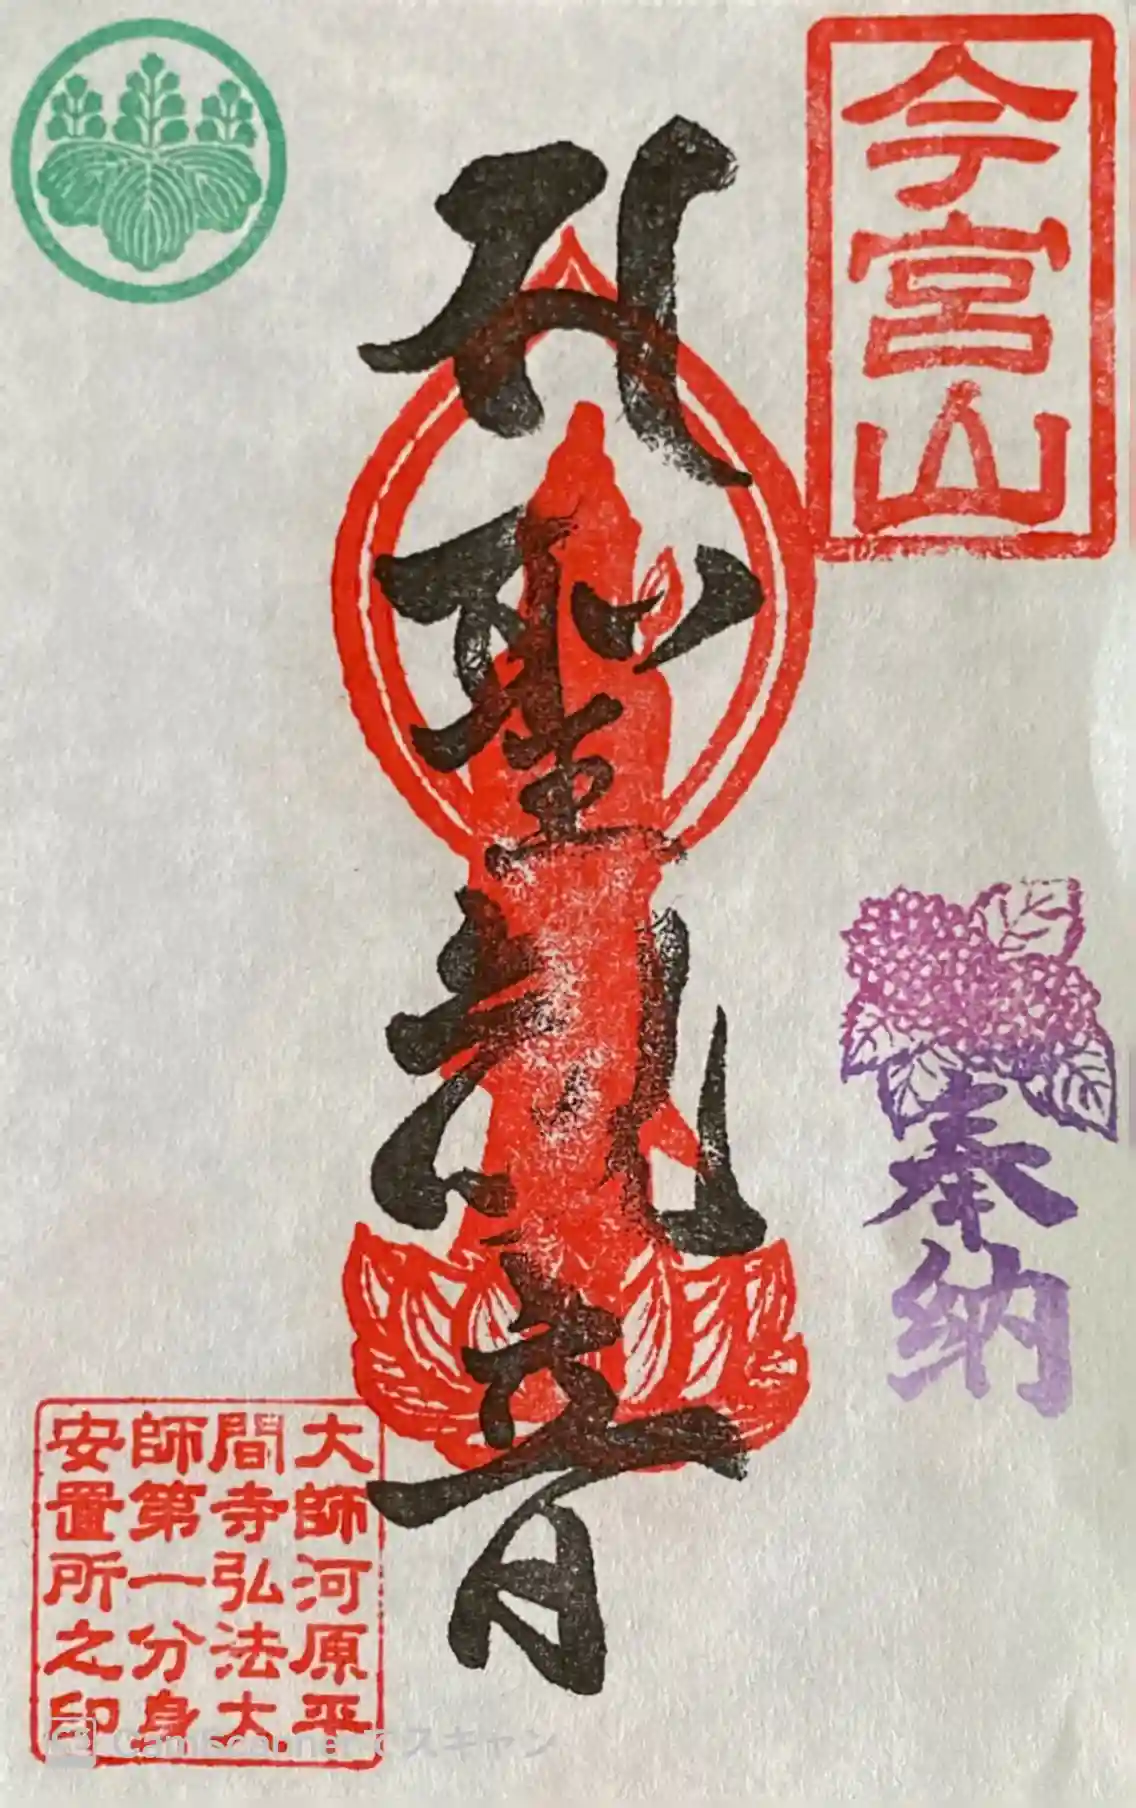 今宮山
奉納
聖観音
大師河原平
間寺弘法大
師第一分身
安置所之印
CamScannerでスキャン